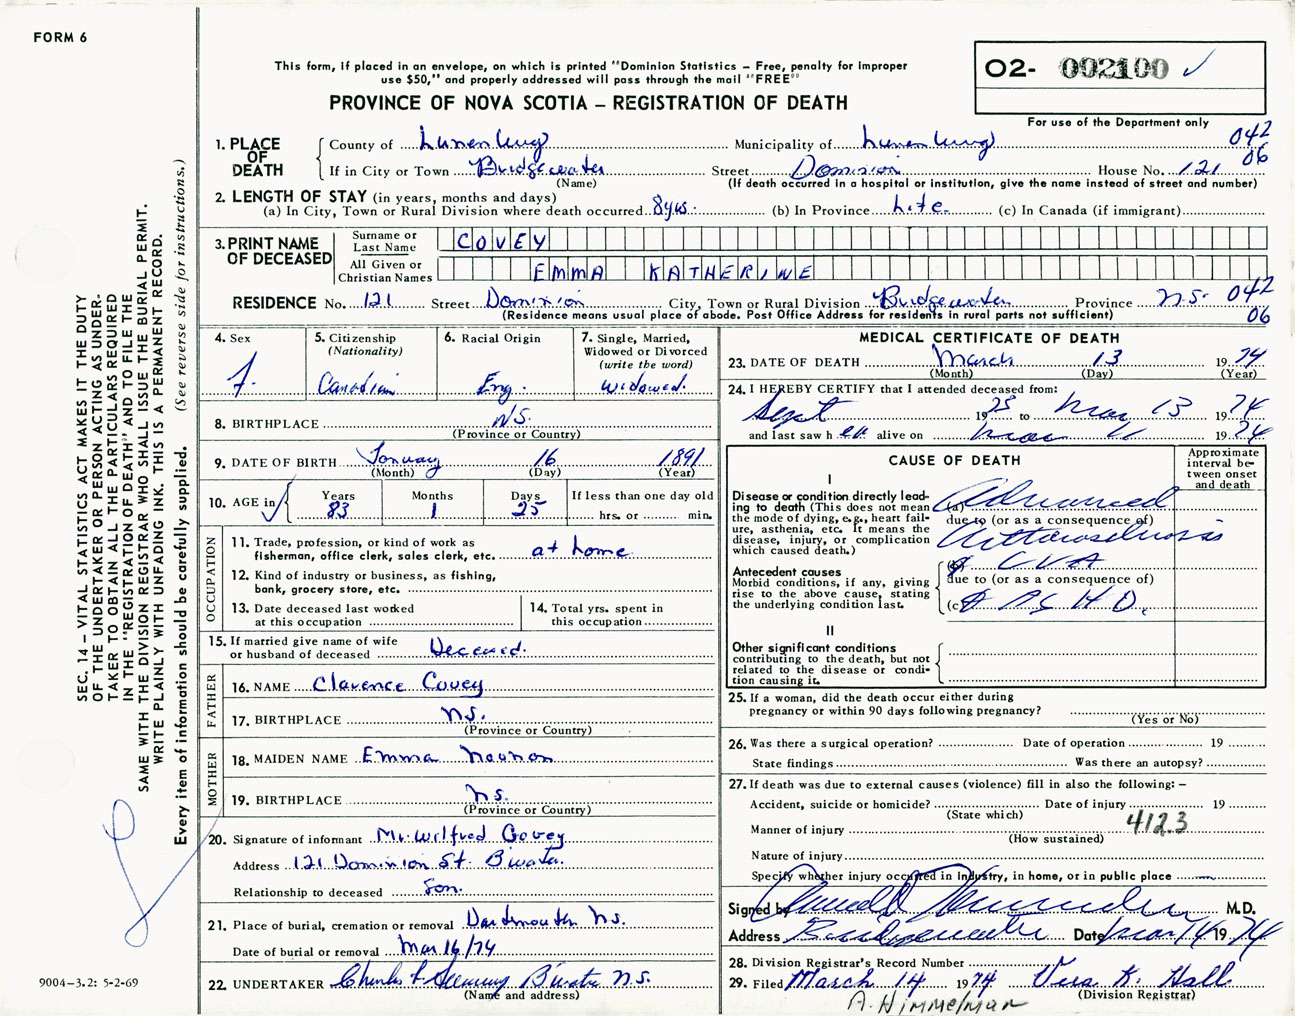 FORM 6
This form, if placed in an envelope, on which is printed "Dominion Statistics - Free, penalty for improper
use $50," and properly addressed will pass through the mail "FREE"
PROVINCE OF NOVA SCOTIA - REGISTRATION OF DEATH
02- 002100 ✓
For use of the Department only
SEC. 14 - VITAL STATISTICS ACT MAKES IT THE DUTY
OF THE UNDERTAKER OR PERSON ACTING AS UNDER-
TAKER TO OBTAIN ALL THE PARTICULARS REQUIRED
IN THE "REGISTRATION OF DEATH" AND TO FILE THE
SAME WITH THE DIVISION REGISTRAR WHO SHALL ISSUE THE BURIAL PERMIT.
WRITE PLAINLY WITH UNFADING INK. THIS IS A PERMANENT RECORD.
Every item of information should be carefully supplied. (See reverse side for instructions.)
1. PLACE OF DEATH
County of Lunenburg Municipality of Lunenburg 042
If in City or Town Bridgewater Street Dominion House No. 121 06
(Name) (If death occurred in a hospital or institution, give the name instead of street and number)
2. LENGTH OF STAY (in years, months and days)
(a) In City, Town or Rural Division where death occurred 8 yrs. (b) In Province Life. (c) In Canada (if immigrant)
3. PRINT NAME OF DECEASED
Surname or Last Name COVEY
All Given or Christian Names EMMA KATHERINE
RESIDENCE No. 121 Street Dominion City, Town or Rural Division Bridgewater Province N.S. 042
(Residence means usual place of abode. Post Office Address for residents in rural parts not sufficient) 06
4. Sex F.
5. Citizenship (Nationality) Canadian
6. Racial Origin Eng.
7. Single, Married, Widowed or Divorced (write the word) Widowed.
8. BIRTHPLACE N.S.
(Province or Country)
9. DATE OF BIRTH January 16 1891
(Month) (Day) (Year)
10. AGE in Years 83 Months 1 Days 25 If less than one day old
hrs. or min.
OCCUPATION
11. Trade, profession, or kind of work as
fisherman, office clerk, sales clerk, etc. at home
12. Kind of industry or business, as fishing,
bank, grocery store, etc.
13. Date deceased last worked
at this occupation
14. Total yrs. spent in
this occupation
15. If married give name of wife
or husband of deceased Deceased.
FATHER
16. NAME Clarence Covey
17. BIRTHPLACE N.S.
(Province or Country)
MOTHER
18. MAIDEN NAME Emma
19. BIRTHPLACE N.S.
(Province or Country)
20. Signature of informant Mr. Wilfred Covey
Address 121 Dominion St. B'water.
Relationship to deceased Son.
21. Place of burial, cremation or removal Dartmouth N.S.
Date of burial or removal Mar 16/74
22. UNDERTAKER Charles B'water N.S.
(Name and address)
9004-3.2: 5-2-69
MEDICAL CERTIFICATE OF DEATH
23. DATE OF DEATH March 13 1974
(Month) (Day) (Year)
24. I HEREBY CERTIFY that I attended deceased from:
Sept 19 to Mar 13 1974
and last saw h er alive on Mar 11 1974
CAUSE OF DEATH
Approximate interval between onset and death
I
Disease or condition directly lead-
ing to death (This does not mean
the mode of dying, e.g., heart fail-
ure, asthenia, etc. It means the
disease, injury, or complication
which caused death.)
(a) Advanced
due to (or as a consequence of)
Arteriosclerosis
Antecedent causes
Morbid conditions, if any, giving
rise to the above cause, stating
the underlying condition last.
(b) CVA
due to (or as a consequence of)
(c) ASHD.
II
Other significant conditions
contributing to the death, but not
related to the disease or condi-
tion causing it.
25. If a woman, did the death occur either during
pregnancy or within 90 days following pregnancy?
(Yes or No)
26. Was there a surgical operation? Date of operation 19
State findings Was there an autopsy?
27. If death was due to external causes (violence) fill in also the following: -
Accident, suicide or homicide? Date of injury 19
(State which)
Manner of injury 412.3
(How sustained)
Nature of injury
Specify whether injury occurred in Industry, in home, or in public place
Signed by M.D.
Address Bridgewater Date Mar 14 1974
28. Division Registrar's Record Number
29. Filed March 14 1974 Vera K. Hall
(Division Registrar)
A. Himmelman